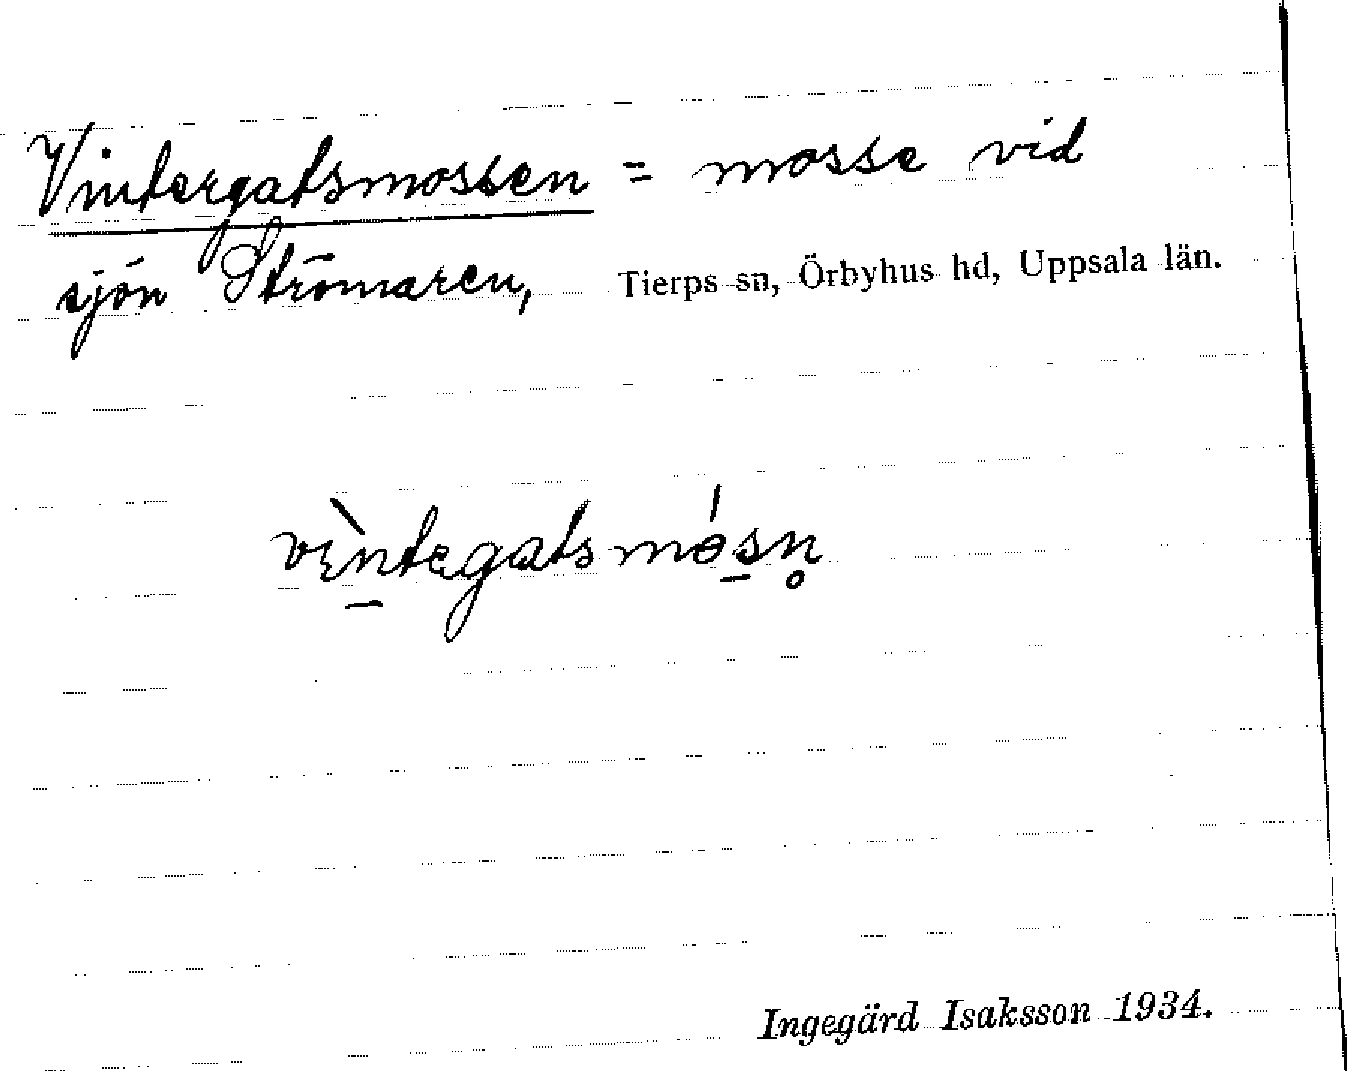 Vintergatsmossen = mosse vid
sjön Strömaren, Tierps sn, Örbyhus hd, Uppsala län.
Ingegärd Isaksson 1934.